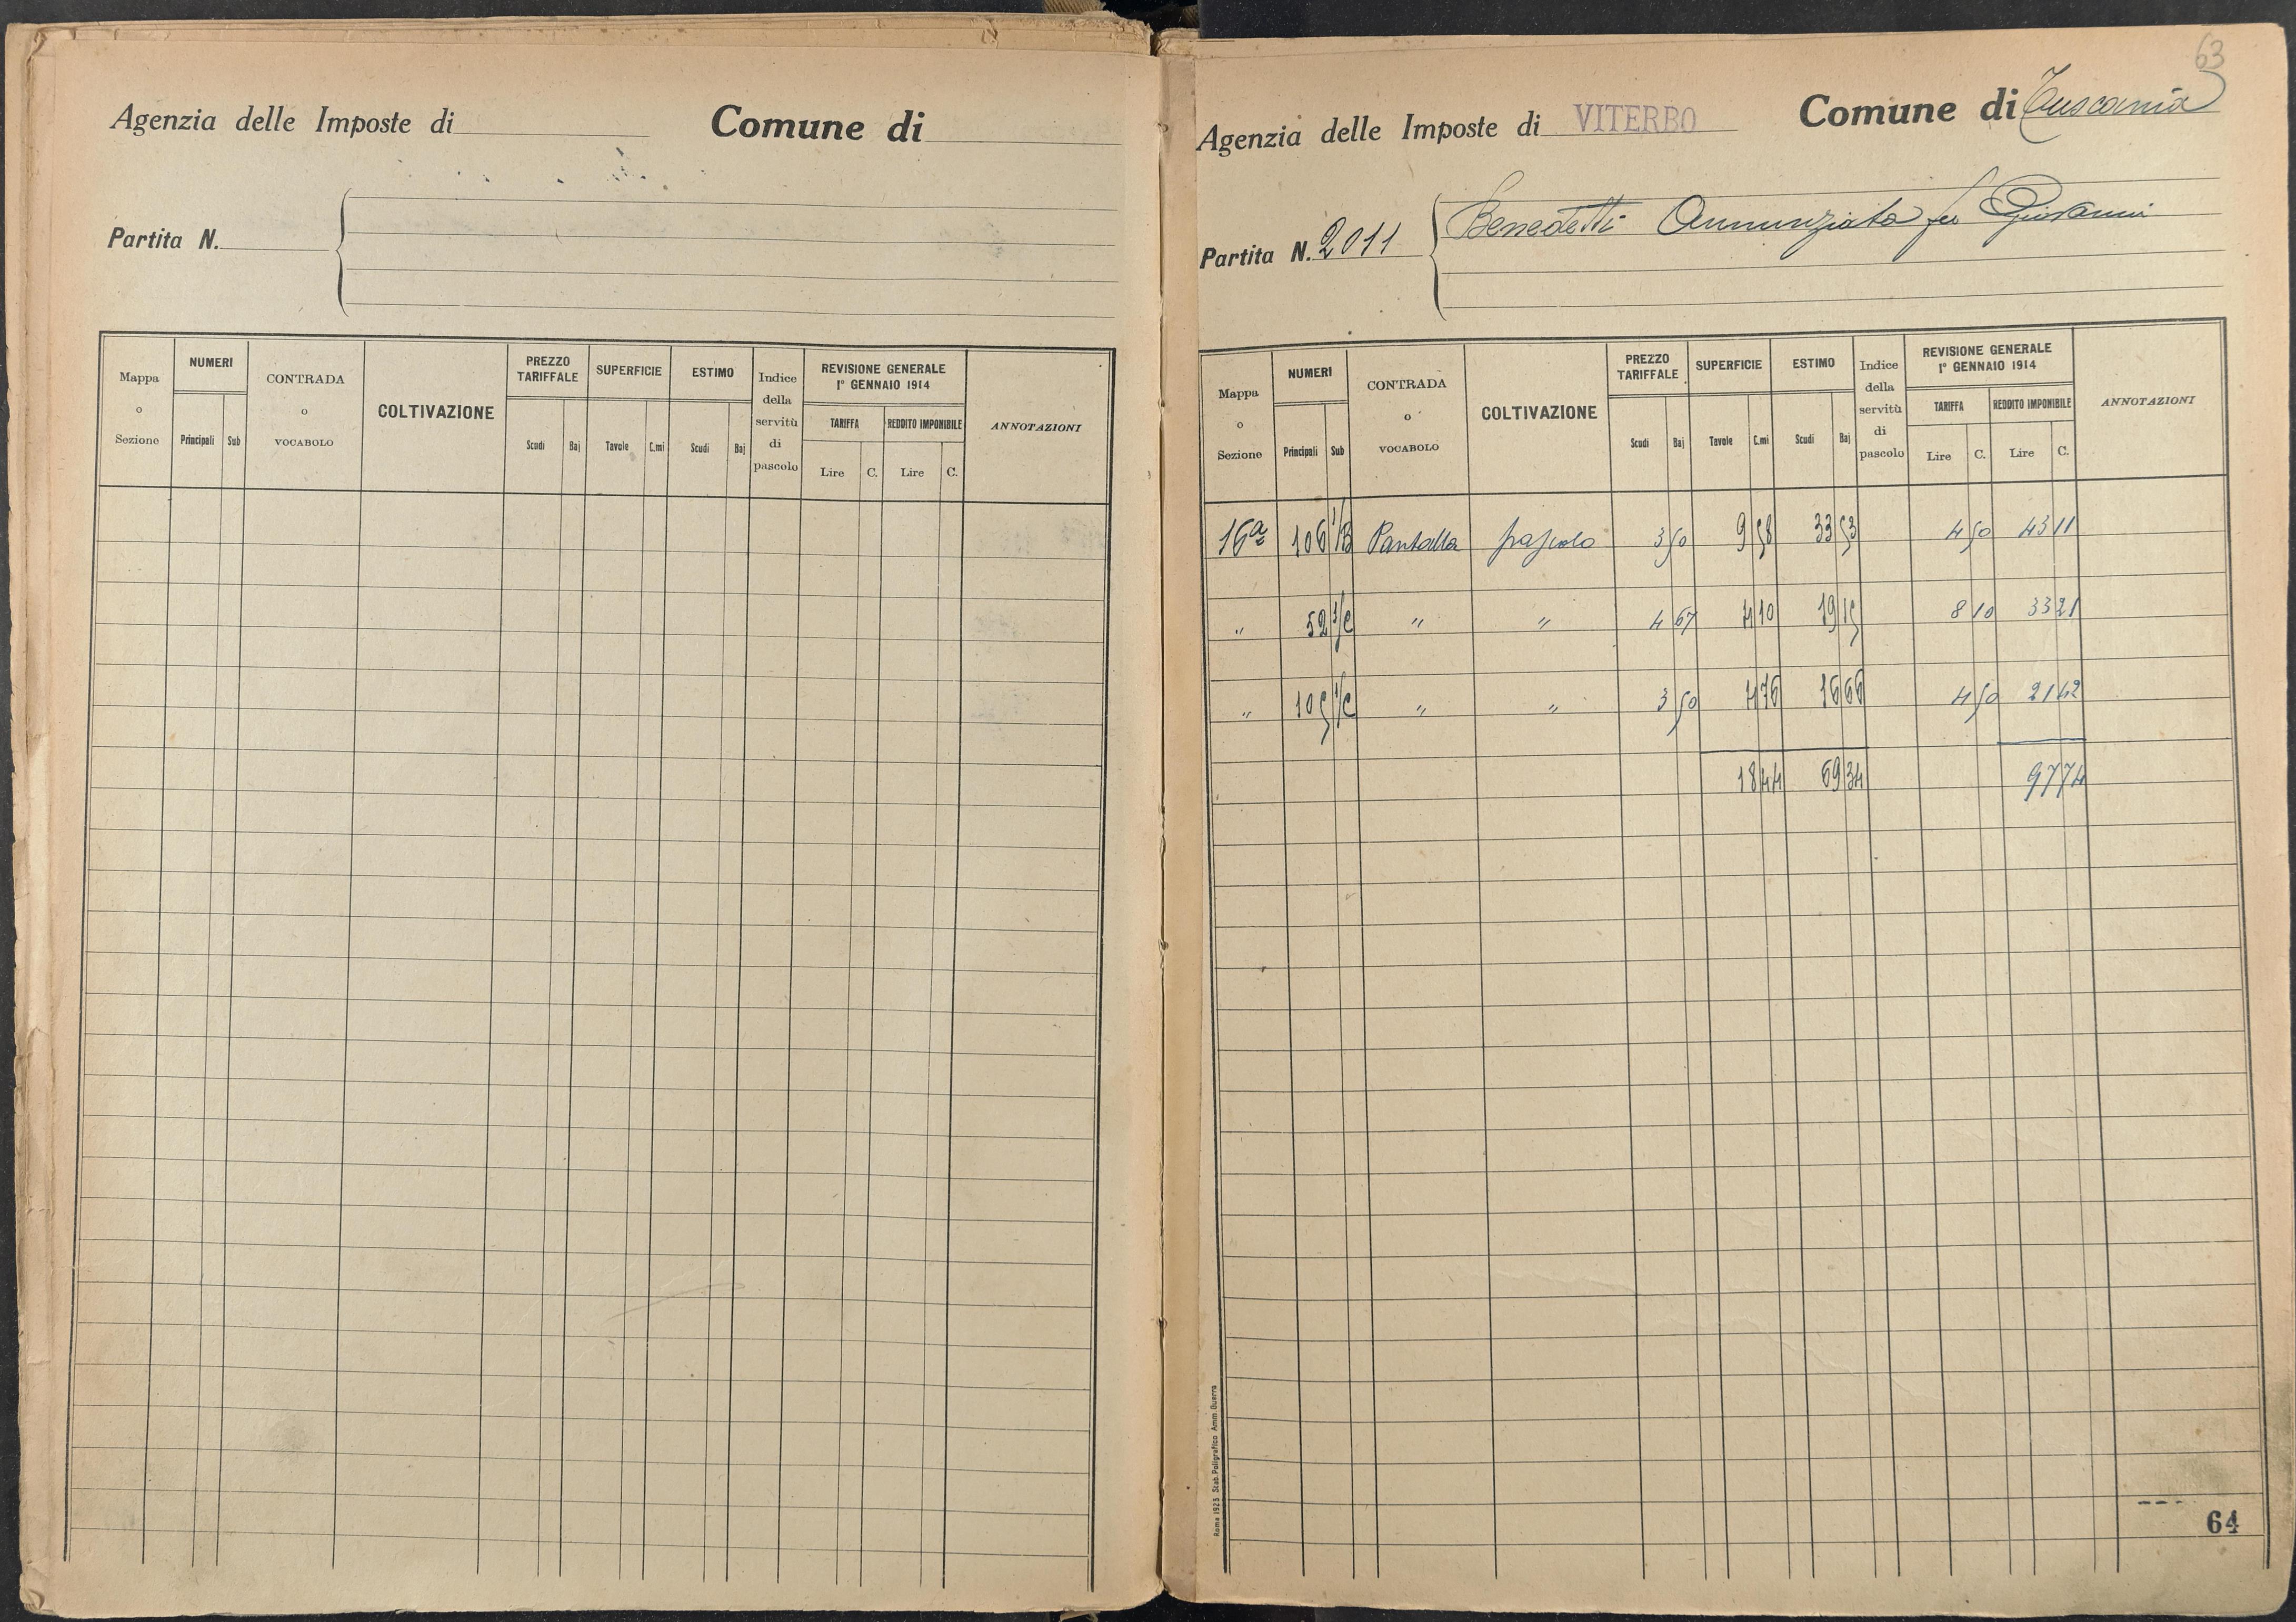 Agenzia delle Imposte di Comune di
Partita N.
Mappa o Sezione NUMERI CONTRADA o VOCABOLO COLTIVAZIONE PREZZO TARIFFALE SUPERFICIE ESTIMO Indice della servitù di pascolo REVISIONE GENERALE 1° GENNAIO 1914 ANNOTAZIONI
TARIFFA REDDITO IMPONIBILE
Principali Sub Scudi Baj Tavole C.mi Scudi Baj Lire C. Lire C.
63
Agenzia delle Imposte di VITERBO Comune di Tuscania
Partita N. 2011 Benedetti Annunziata fu Giovanni
Mappa o Sezione NUMERI CONTRADA o VOCABOLO COLTIVAZIONE PREZZO TARIFFALE SUPERFICIE ESTIMO Indice della servitù di pascolo REVISIONE GENERALE 1° GENNAIO 1914 ANNOTAZIONI
TARIFFA REDDITO IMPONIBILE
Principali Sub Scudi Baj Tavole C.mi Scudi Baj Lire C. Lire C.
16a 106 1/B Pantalla pascolo 3 50 9 58 33 53 4 50 43 11
" 52 1/C " " 4 67 4 10 19 15 8 10 33 21
" 105 1/C " " 3 50 4 76 16 66 4 50 21 42
18 44 69 34 97 74
Roma 1923 Stab. Poligrafico Amm. Guerra
64